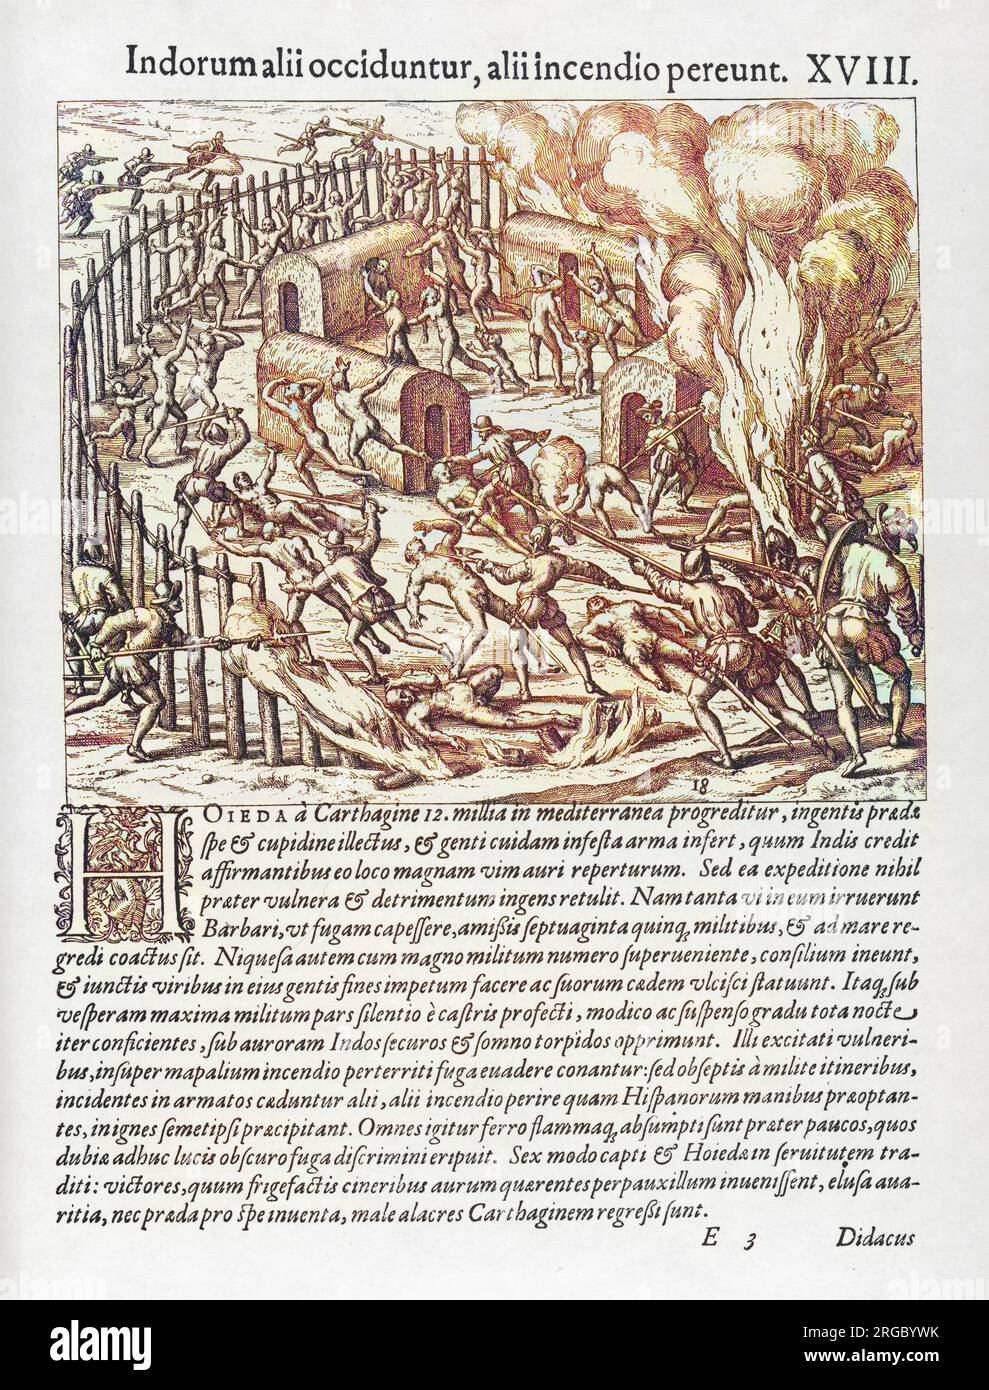 Indorum alii occiduntur, alii incendio pereunt. XVIII.
18
HOIEDA à Carthagine 12. millia in mediterranea progreditur, ingentis prædæ
ſpe & cupidine illectus, & genti cuidam infeſta arma infert, quum Indis credit
affirmantibus eo loco magnam vim auri reperturum. Sed ea expeditione nihil
præter vulnera & detrimentum ingens retulit. Nam tanta vi in eum irruerunt
Barbari, vt fugam capeſſere, amißis ſeptuaginta quinq; militibus, & ad mare re-
gredi coactus ſit. Niqueſa autem cum magno militum numero ſuperueniente, conſilium ineunt,
& iunctis viribus in eius gentis fines impetum facere ac ſuorum cædem vlciſci ſtatuunt. Itaq; ſub
veſperam maxima militum pars ſilentio è caſtris profecti, modico ac ſuſpenſo gradu tota nocte
iter conficientes, ſub auroram Indos ſecuros & ſomno torpidos opprimunt. Illi excitati vulneri-
bus, inſuper mapalium incendio perterriti fuga euadere conantur: ſed obſeptis à milite itineribus,
incidentes in armatos cæduntur alii, alii incendio perire quam Hiſpanorum manibus præoptan-
tes, in ignes ſemetipſi præcipitant. Omnes igitur ferro flammaq; abſumpti ſunt præter paucos, quos
dubiæ adhuc lucis obſcuro fuga diſcrimini eripuit. Sex modo capti & Hoiedæ in ſeruitutem tra-
diti: victores, quum frigefactis cineribus aurum quærentes perpauxillum inueniſſent, eluſa aua-
ritia, nec præda pro ſpe inuenta, male alacres Carthaginem regreßi ſunt.
E 3 Didacus
alamy
Image ID: 2RGBYWK
www.alamy.com